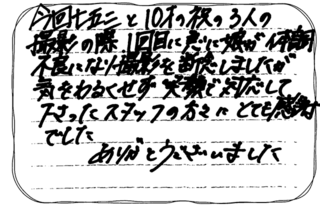 今回七五三と10才の祝の3人の
撮影の際、1回目に急に娘が体調
不良になり撮影を断念しましたが
気をわるくせず笑顔で対応して
下さったスタッフの方々にとても感謝
でした
ありがとうございました